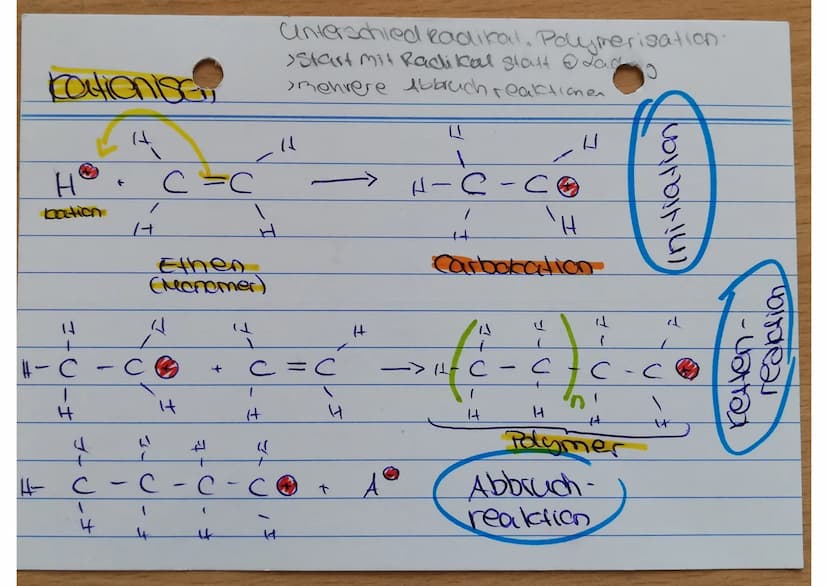 Unterschied Radikal. Polymerisation:
>Start mit Radikal statt ⊕ Ladung
>mehrere Abbruchreaktionen
Kationisch
H⊕ + C=C → H-C-C⊕
H H H H H H H H H
Kation
Ethen
(Monomer)
Carbokation
Initiation
H H H H H H H H
H-C-C⊕ + C=C → H-(C-C)n C-C⊕
H H H H H H H H
Polymer
Ketten-
reaktion
H H H H
H-C-C-C-C⊕ + A⊖
H H H H
Abbruch-
reaktion